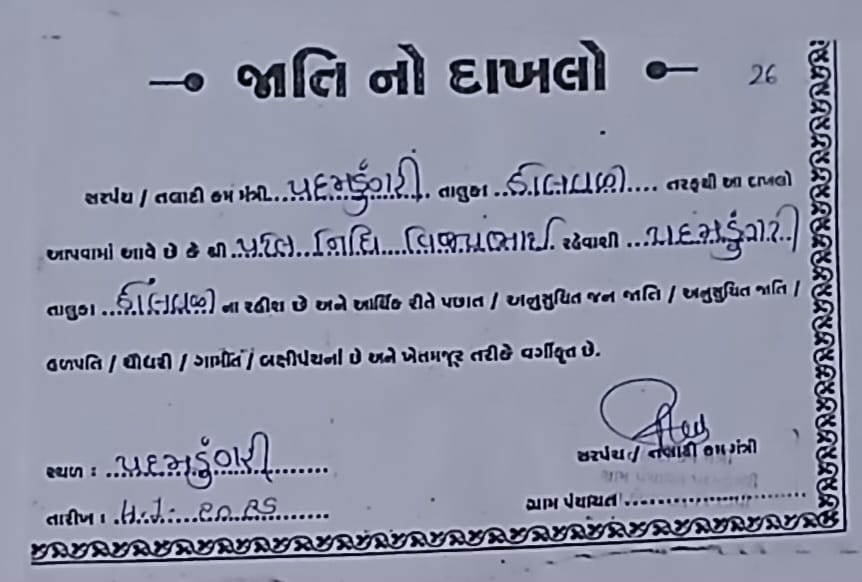 જાતિ નો દાખલો
26
સરપંચ / તલાટી કમ મંત્રી...પદમડુંગરી. તાલુકા ..ડોલવણ.... તરફથી આ દાખલો
આપવામાં આવે છે કે શ્રી ...નિધિ વિજયભાઈ રહેવાશી ...પદમડુંગરી
તાલુકા ...ડોલવણ ના રહીશ છે અને આર્થિક રીતે પછાત / અનુસુચિત જન જાતિ / અનુસુચિત જાતિ /
હળપતિ / ચૌધરી / ગામીત / બક્ષીપંચના છે અને ખેતમજૂર તરીકે વર્ગીકૃત છે.
સ્થળ : ..પદમડુંગરી.......
સરપંચ / તલાટી કમ મંત્રી
તારીખ :
ગ્રામ પંચાયત............................